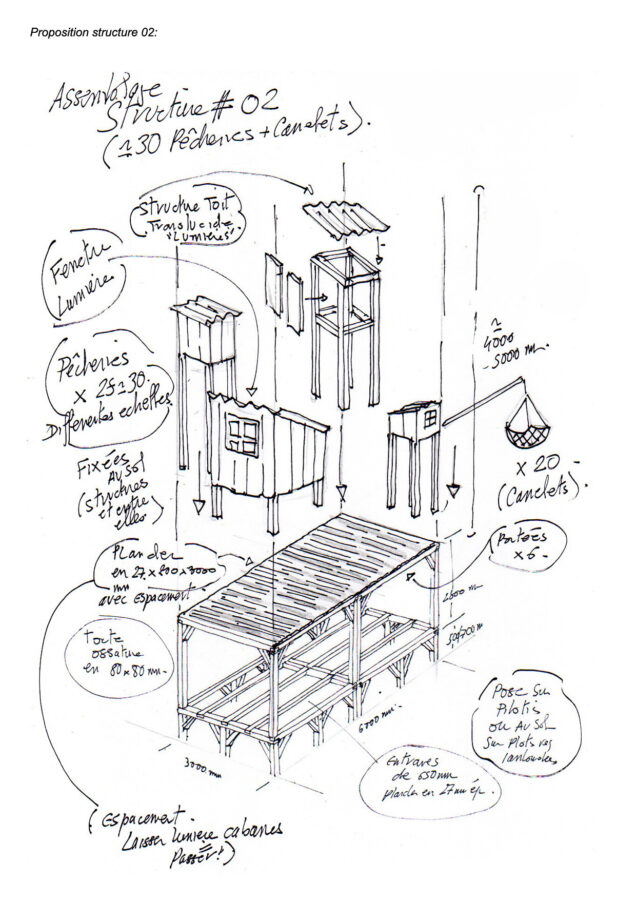 Proposition structure 02:
Assemblage
Structure # 02
(≃30 Pêcheries + Carrelets).
Structure Toit
Translucide
"Lumières".
Fenetre
Lumière
Pêcheries
x 25≃30.
Differentes echelles.
Fixées
Au Sol
(structures
et entre
elles)
≃
4000
-5000 mm.
x 20
(Carrelets).
Portées
x 6.
Plancher
en 27 x 200 x 3000
mm
avec espacement.
Toute
ossature
en 80 x 80 mm.
2500 mm
6000 mm.
3000 mm
Pose sur
Pilotis
ou Au Sol
Sur Plots
Entraxes
de 650mm
plancher en 27mm ép.
(Espacement.
Laisser lumière cabanes
Passer!)